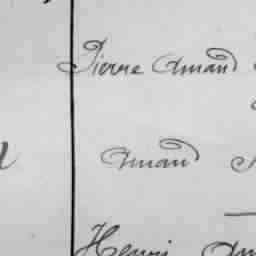 Pierre Amand
Amand
Henri